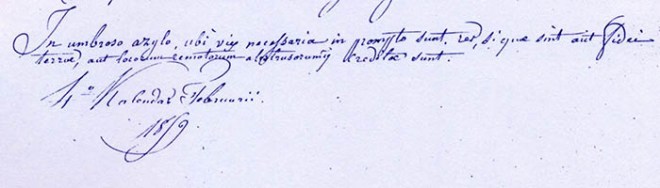 In umbroso azylo, ubi vix necessaria in prompto sunt, res, si que sint aut Fidei
terrae, aut locorum remotorum abstrusorumq traditae sunt.
4° Kalendas Februarii.
1819